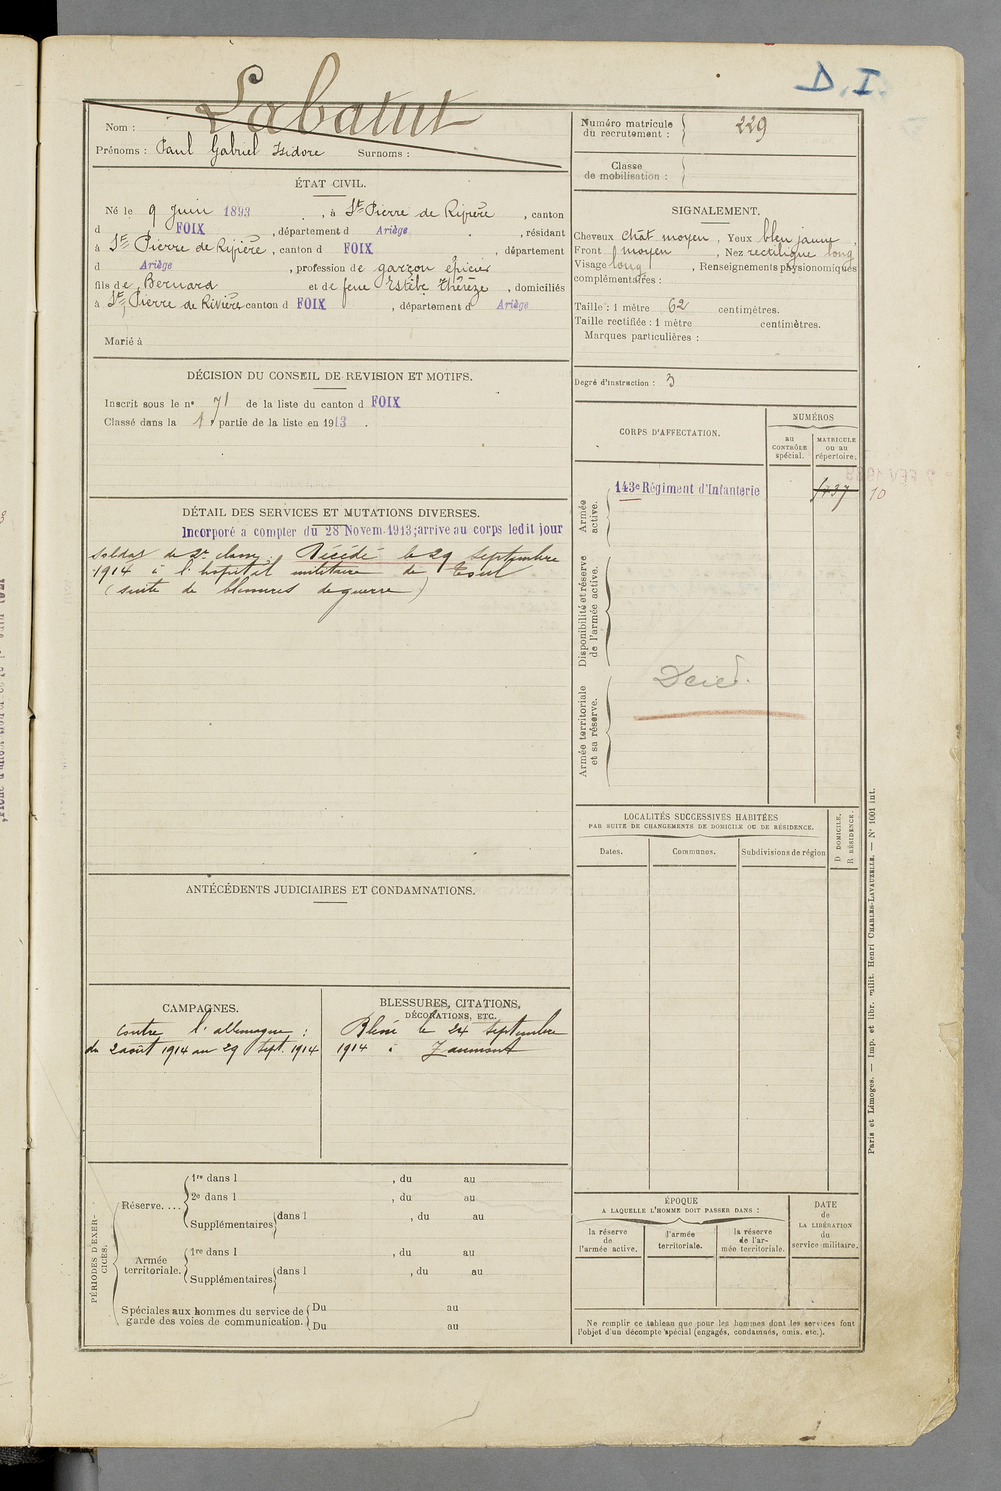 D. I.
Labatut
Nom :
Prénoms : Paul Gabriel Isidore Surnoms :
ÉTAT CIVIL.
Né le 9 Juin 1893 , à St Pierre de Rivière , canton
d FOIX , département d Ariège , résidant
à St Pierre de Rivière , canton d FOIX , département
d Ariège , profession de garçon épicier
fils de Bernard et de feue Estèbe Thérèze , domiciliés
à St Pierre de Rivière canton d FOIX , département d Ariège
Marié à
DÉCISION DU CONSEIL DE REVISION ET MOTIFS.
Inscrit sous le no 71 de la liste du canton d FOIX
Classé dans la 1 partie de la liste en 1913 .
DÉTAIL DES SERVICES ET MUTATIONS DIVERSES.
Incorporé a compter du 28 Novem. 1913; arrive au corps ledit jour
soldat de 2e classe. Décédé le 29 septembre
1914 à l'hopital militaire de Toul
(suite de blessures de guerre)
ANTÉCÉDENTS JUDICIAIRES ET CONDAMNATIONS.
CAMPAGNES.
Contre l'allemagne :
du 2 août 1914 au 29 sept. 1914
BLESSURES, CITATIONS,
DÉCORATIONS, ETC.
Blessé le 24 septembre
1914 à
PÉRIODES D'EXER-
CICES.
Réserve. ...
1re dans l , du au
2e dans l , du au
Supplémentaires dans l , du au
Armée
territoriale.
1re dans l , du au
Supplémentaires dans l , du au
Spéciales aux hommes du service de
garde des voies de communication.
Du au
Du au
Numéro matricule
du recrutement : 229
Classe
de mobilisation :
SIGNALEMENT.
Cheveux chât moyen , Yeux bleu jaune ,
Front moyen , Nez rectiligne long
Visage long , Renseignements physionomiques
complémentaires :
Taille : 1 mètre 62 centimètres.
Taille rectifiée : 1 mètre centimètres.
Marques particulières :
Degré d'instruction : 3
CORPS D'AFFECTATION.
NUMÉROS
au
CONTRÔLE
spécial.
MATRICULE
ou au
répertoire.
Armée
active.
143e Régiment d'Infanterie
10
Disponibilité et réserve
de l'armée active.
Armée territoriale
et sa réserve.
LOCALITÉS SUCCESSIVES HABITÉES
PAR SUITE DE CHANGEMENTS DE DOMICILE OU DE RÉSIDENCE.
Dates.
Communes.
Subdivisions de région
D DOMICILE,
R RÉSIDENCE.
ÉPOQUE
A LAQUELLE L'HOMME DOIT PASSER DANS :
la réserve
de
l'armée active.
l'armée
territoriale.
la réserve
de l'ar-
mée territoriale.
DATE
de
LA LIBÉRATION
du
service militaire.
Ne remplir ce tableau que pour les hommes dont les services font
l'objet d'un décompte spécial (engagés, condamnés, omis, etc.).
Paris et Limoges. — Imp. et libr. milit. Henri CHARLES-LAVAUZELLE. — No 1001 int.